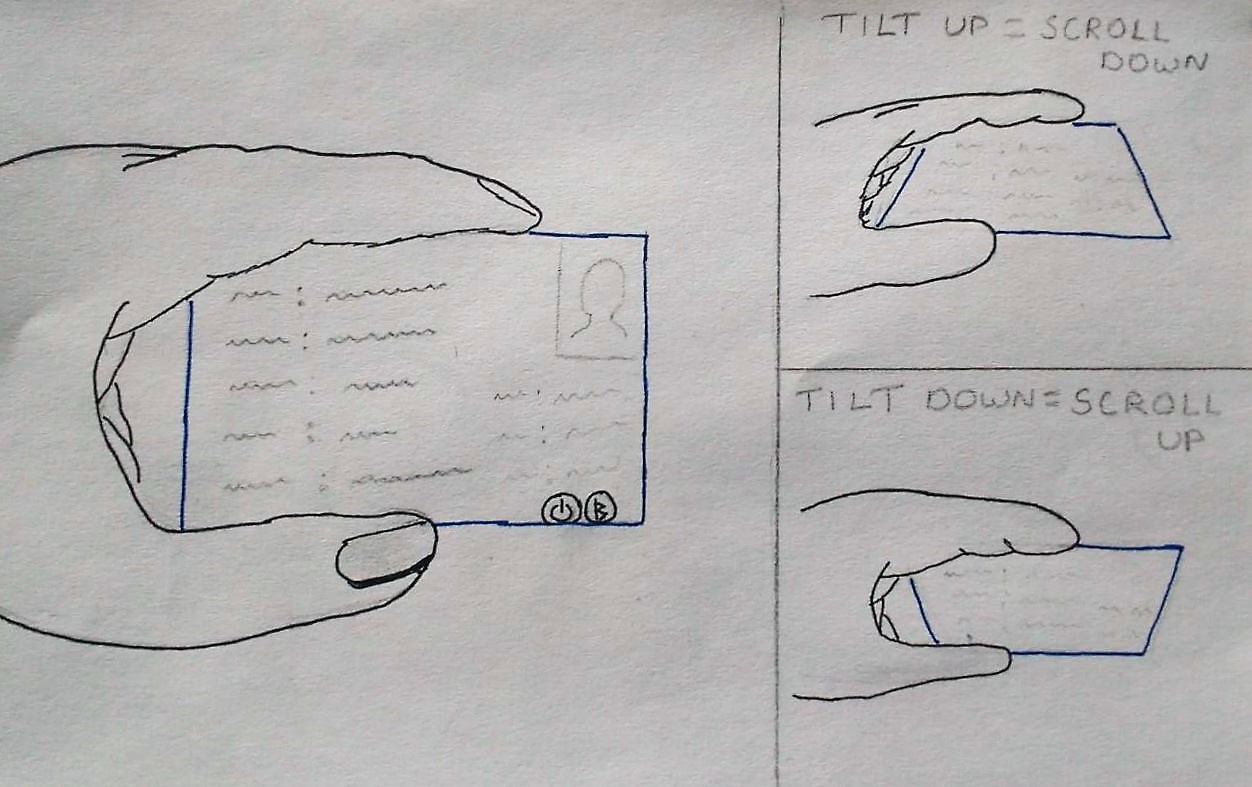 TILT UP = SCROLL
DOWN
TILT DOWN = SCROLL
UP